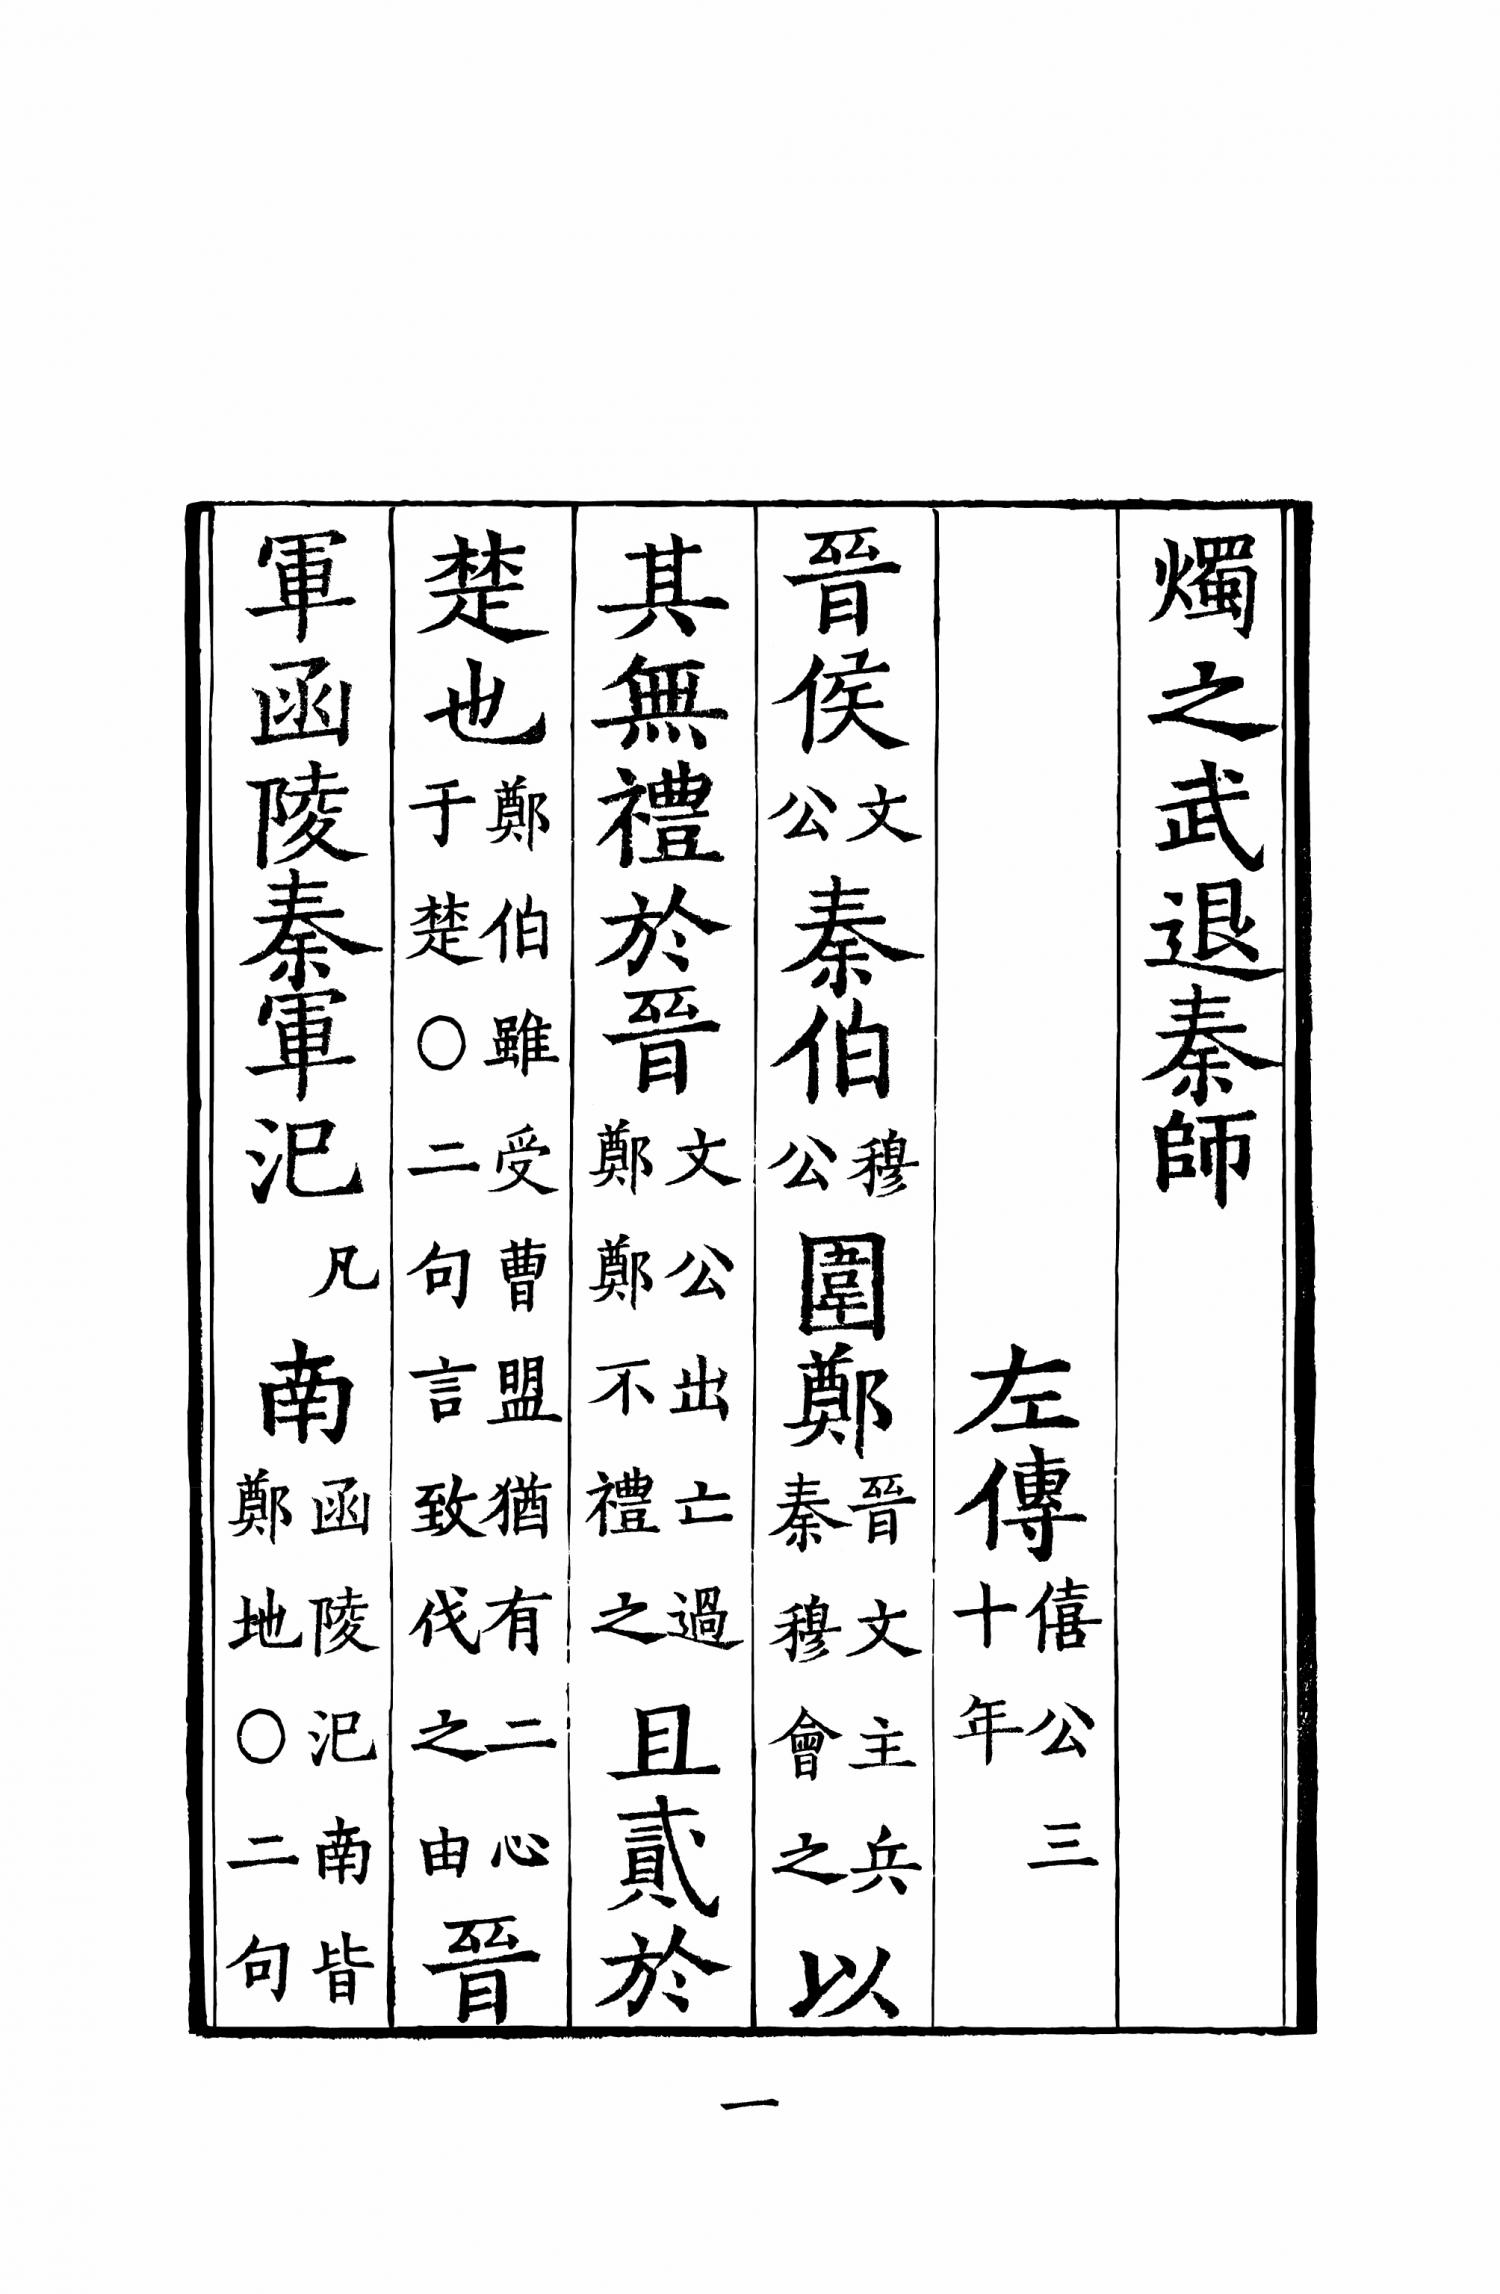 燭之武退秦師
左傳僖公三十年
晉侯文公秦伯穆公圍鄭晉文主兵秦穆會之以
其無禮於晉文公出亡過鄭鄭不禮之且貳於
楚也鄭伯雖受曹盟猶有二心于楚〇二句言致伐之由晉
軍函陵秦軍氾凡南函陵氾南皆鄭地〇二句
一